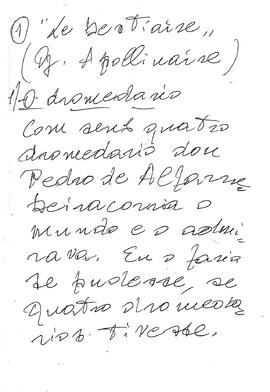 ① "Le bestiaire"
(G. Apollinaire)
1/ O dromedario
Com seus quatro
dromedario don
Pedro de Alfarru=
beira corria o
mundo e o admi=
rava. Eu o faria
se pudesse, se
quatro dromeda=
rios tivesse.